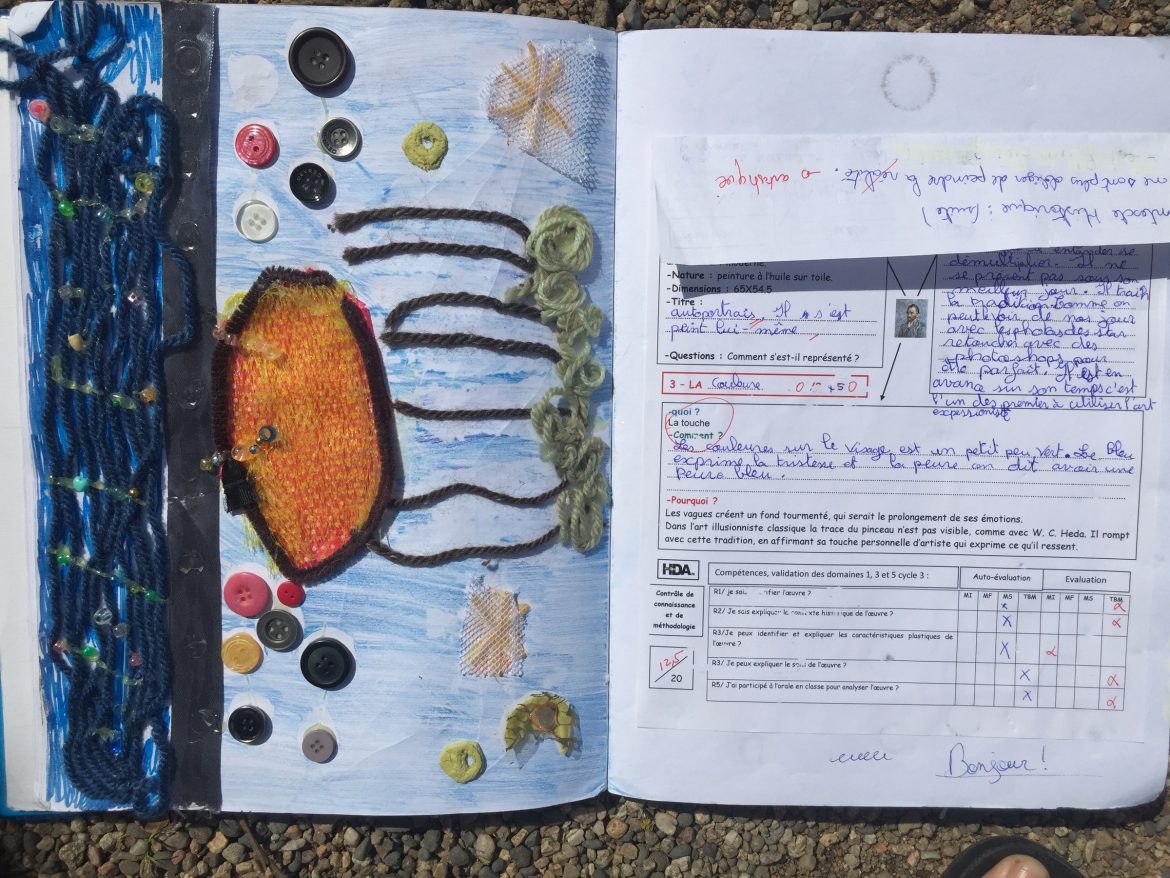 Historique : (suite)
ne sont plus obliger de peindre la réalité. → artistique
-Nature : peinture à l'huile sur toile.
-Dimensions : 65X54,5
-Titre :
autoportrais, Il s'est
peint lui-même
-Questions : Comment s'est-il représenté ?
démultiplier. Et ne
se présent pas sous son
meilleur jour. Il trait
la tradition. Comme on
peut voir de nos jour
avec les photos des star
retoucher avec des
photoshops pour
être parfait. Il est en
avance sur son temps c'est
l'un des premier à utiliser l'art
expressioniste
3 - LA Couleure
-quoi ?
La touche
-Comment ?
Les couleures sur le visage est un petit peu vert. Le bleu
exprime la tristesse et la peure on dit avoir une
peure bleu.
-Pourquoi ?
Les vagues créent un fond tourmenté, qui serait le prolongement de ses émotions.
Dans l'art illusionniste classique la trace du pinceau n'est pas visible, comme avec W. C. Heda. Il rompt
avec cette tradition, en affirmant sa touche personnelle d'artiste qui exprime ce qu'il ressent.
HDA.
Contrôle de
connaissance
et de
méthodologie
12,5
20
Compétences, validation des domaines 1, 3 et 5 cycle 3 :
Auto-évaluation
Evaluation
MI MF MS TBM MI MF MS TBM
R1/ je sais identifier l'œuvre ?
R2/ Je sais expliquer le contexte historique de l'œuvre ?
R3/Je peux identifier et expliquer les caractéristiques plastiques de
l'œuvre ?
R3/ Je peux expliquer le sens de l'œuvre ?
R5/ J'ai participé à l'orale en classe pour analyser l'œuvre ?
Bonjour !